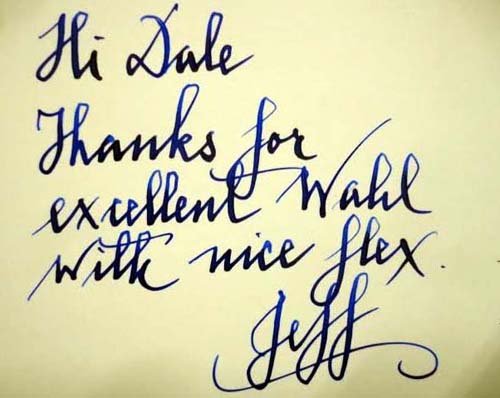 Hi Dale
Thanks for
excellent Wahl
with nice flex.
Jeff